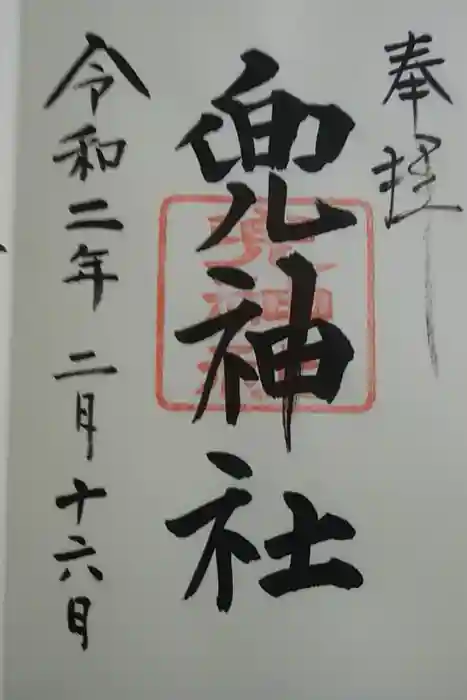 奉拝
兜神社
令和二年 二月十六日